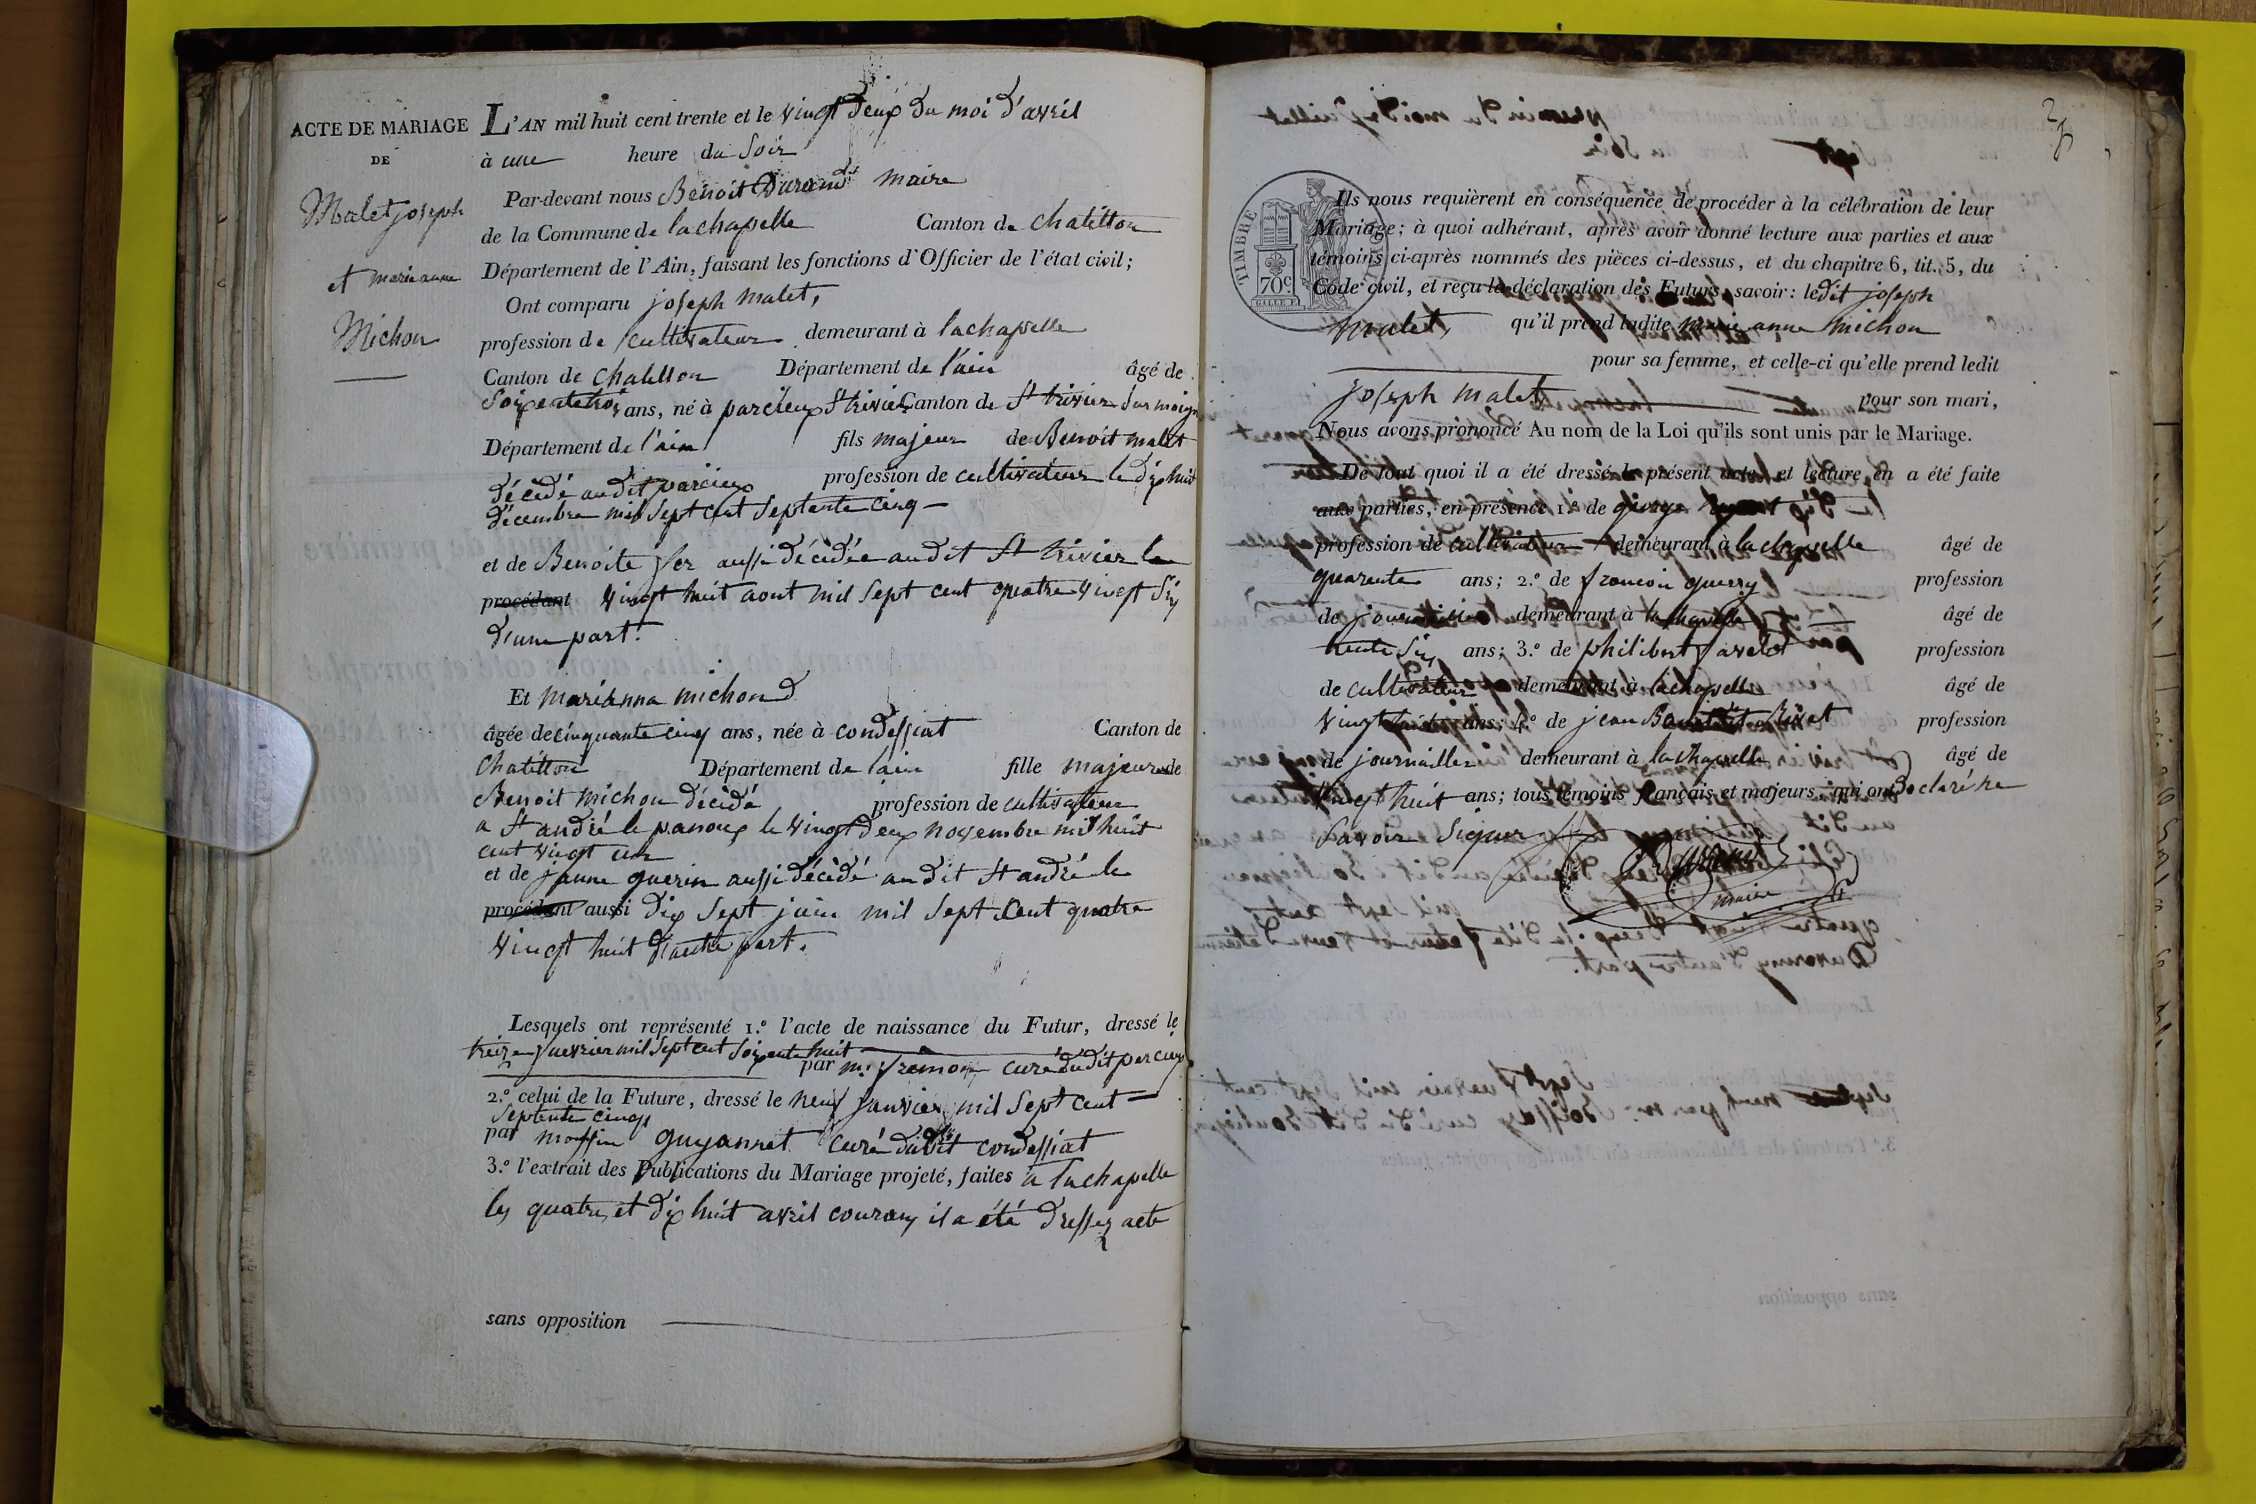 ACTE DE MARIAGE
DE
Malet joseph
et marie anne
Michon
L'AN mil huit cent trente et le vingt deux du moi d'avril
à une heure du Soir
Par-devant nous Benoit Durand maire
de la Commune de lachapelle Canton de chatillon
Département de l'Ain, faisant les fonctions d'Officier de l'état civil;
Ont comparu joseph malet,
profession de cultivateur demeurant à lachapelle
Canton de chatillon Département de l'ain âgé de
ans, né à parcieux St trivier Canton de St trivier Sur moign
Département de l'ain fils majeur de Benoit malet
décédé audit parcieux profession de cultivateur le dix huit
décembre mil sept cent septente cinq
et de Benoite fer aussi décédée audit St trivier le
procédant vingt huit aout mil sept cent quatre vingt Six
d'une part.
Et marianna michon
âgée de cinquante cinq ans, née à condessiat Canton de
chatillon Département de lain fille majeure de
Benoit michon décédé profession de cultivateur
a St andré le panoux le vingt deux novembre mil huit
cent vingt un
et de jeanne guerin aussi décédé audit St andré le
procédant aussi dix Sept juin mil Sept Cent quatre
vingt huit d'autre part.
Lesquels ont représenté 1.º l'acte de naissance du Futur, dressé le
treize fuevrier mil Sept cent Soixente huit
par mr fremon curé dudit parcieux
2.º celui de la Future, dressé le neuf janvier mil Sept cent
Septente cinq
par guyannet curé dudit condessiat
3.º l'extrait des Publications du Mariage projeté, faites a lachapelle
les quatre et dix huit avril courany il a été dressez acte
sans opposition
TIMBRE
70 c
Ils nous requièrent en conséquence de procéder à la célébration de leur
Mariage; à quoi adhérant, après avoir donné lecture aux parties et aux
témoins ci-après nommés des pièces ci-dessus, et du chapitre 6, tit. 5, du
Code civil, et reçu la déclaration des Futurs, savoir: ledit joseph
malet, qu'il prend ladite marie anne michon
pour sa femme, et celle-ci qu'elle prend ledit
joseph malet pour son mari,
Nous avons prononcé Au nom de la Loi qu'ils sont unis par le Mariage.
De tout quoi il a été dressé le présent acte, et lecture en a été faite
aux parties, en présence 1.º de george
profession de cultivateur demeurant à la chapelle âgé de
quarente ans; 2.º de francoi guerry profession
de journailier demeurant à la chapelle âgé de
trente Six ans; 3.º de philibert favelot profession
de cultivateur demeurant à lachapelle âgé de
vingt ans; 4.º de jean profession
de journaillier demeurant à lachapelle âgé de
vingt huit ans; tous témoins français et majeurs, qui ont declaré ne
Savoir Signer
maire